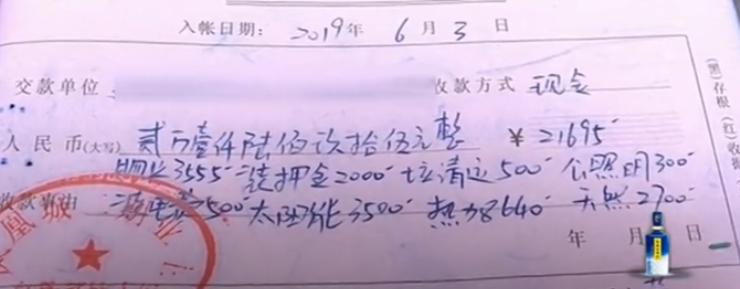 入帐日期： 2019年 6月 3日
交款单位 收款方式 现金
人民币(大写) 贰万壹仟陆佰玖拾伍元整 ¥21695
物业3555 装押金2000 垃清运500 公照明300
收款事由 电 500 太阳能3500 热力8640 天然2700
年 月 日
(黑)存根(红)收据
凰城